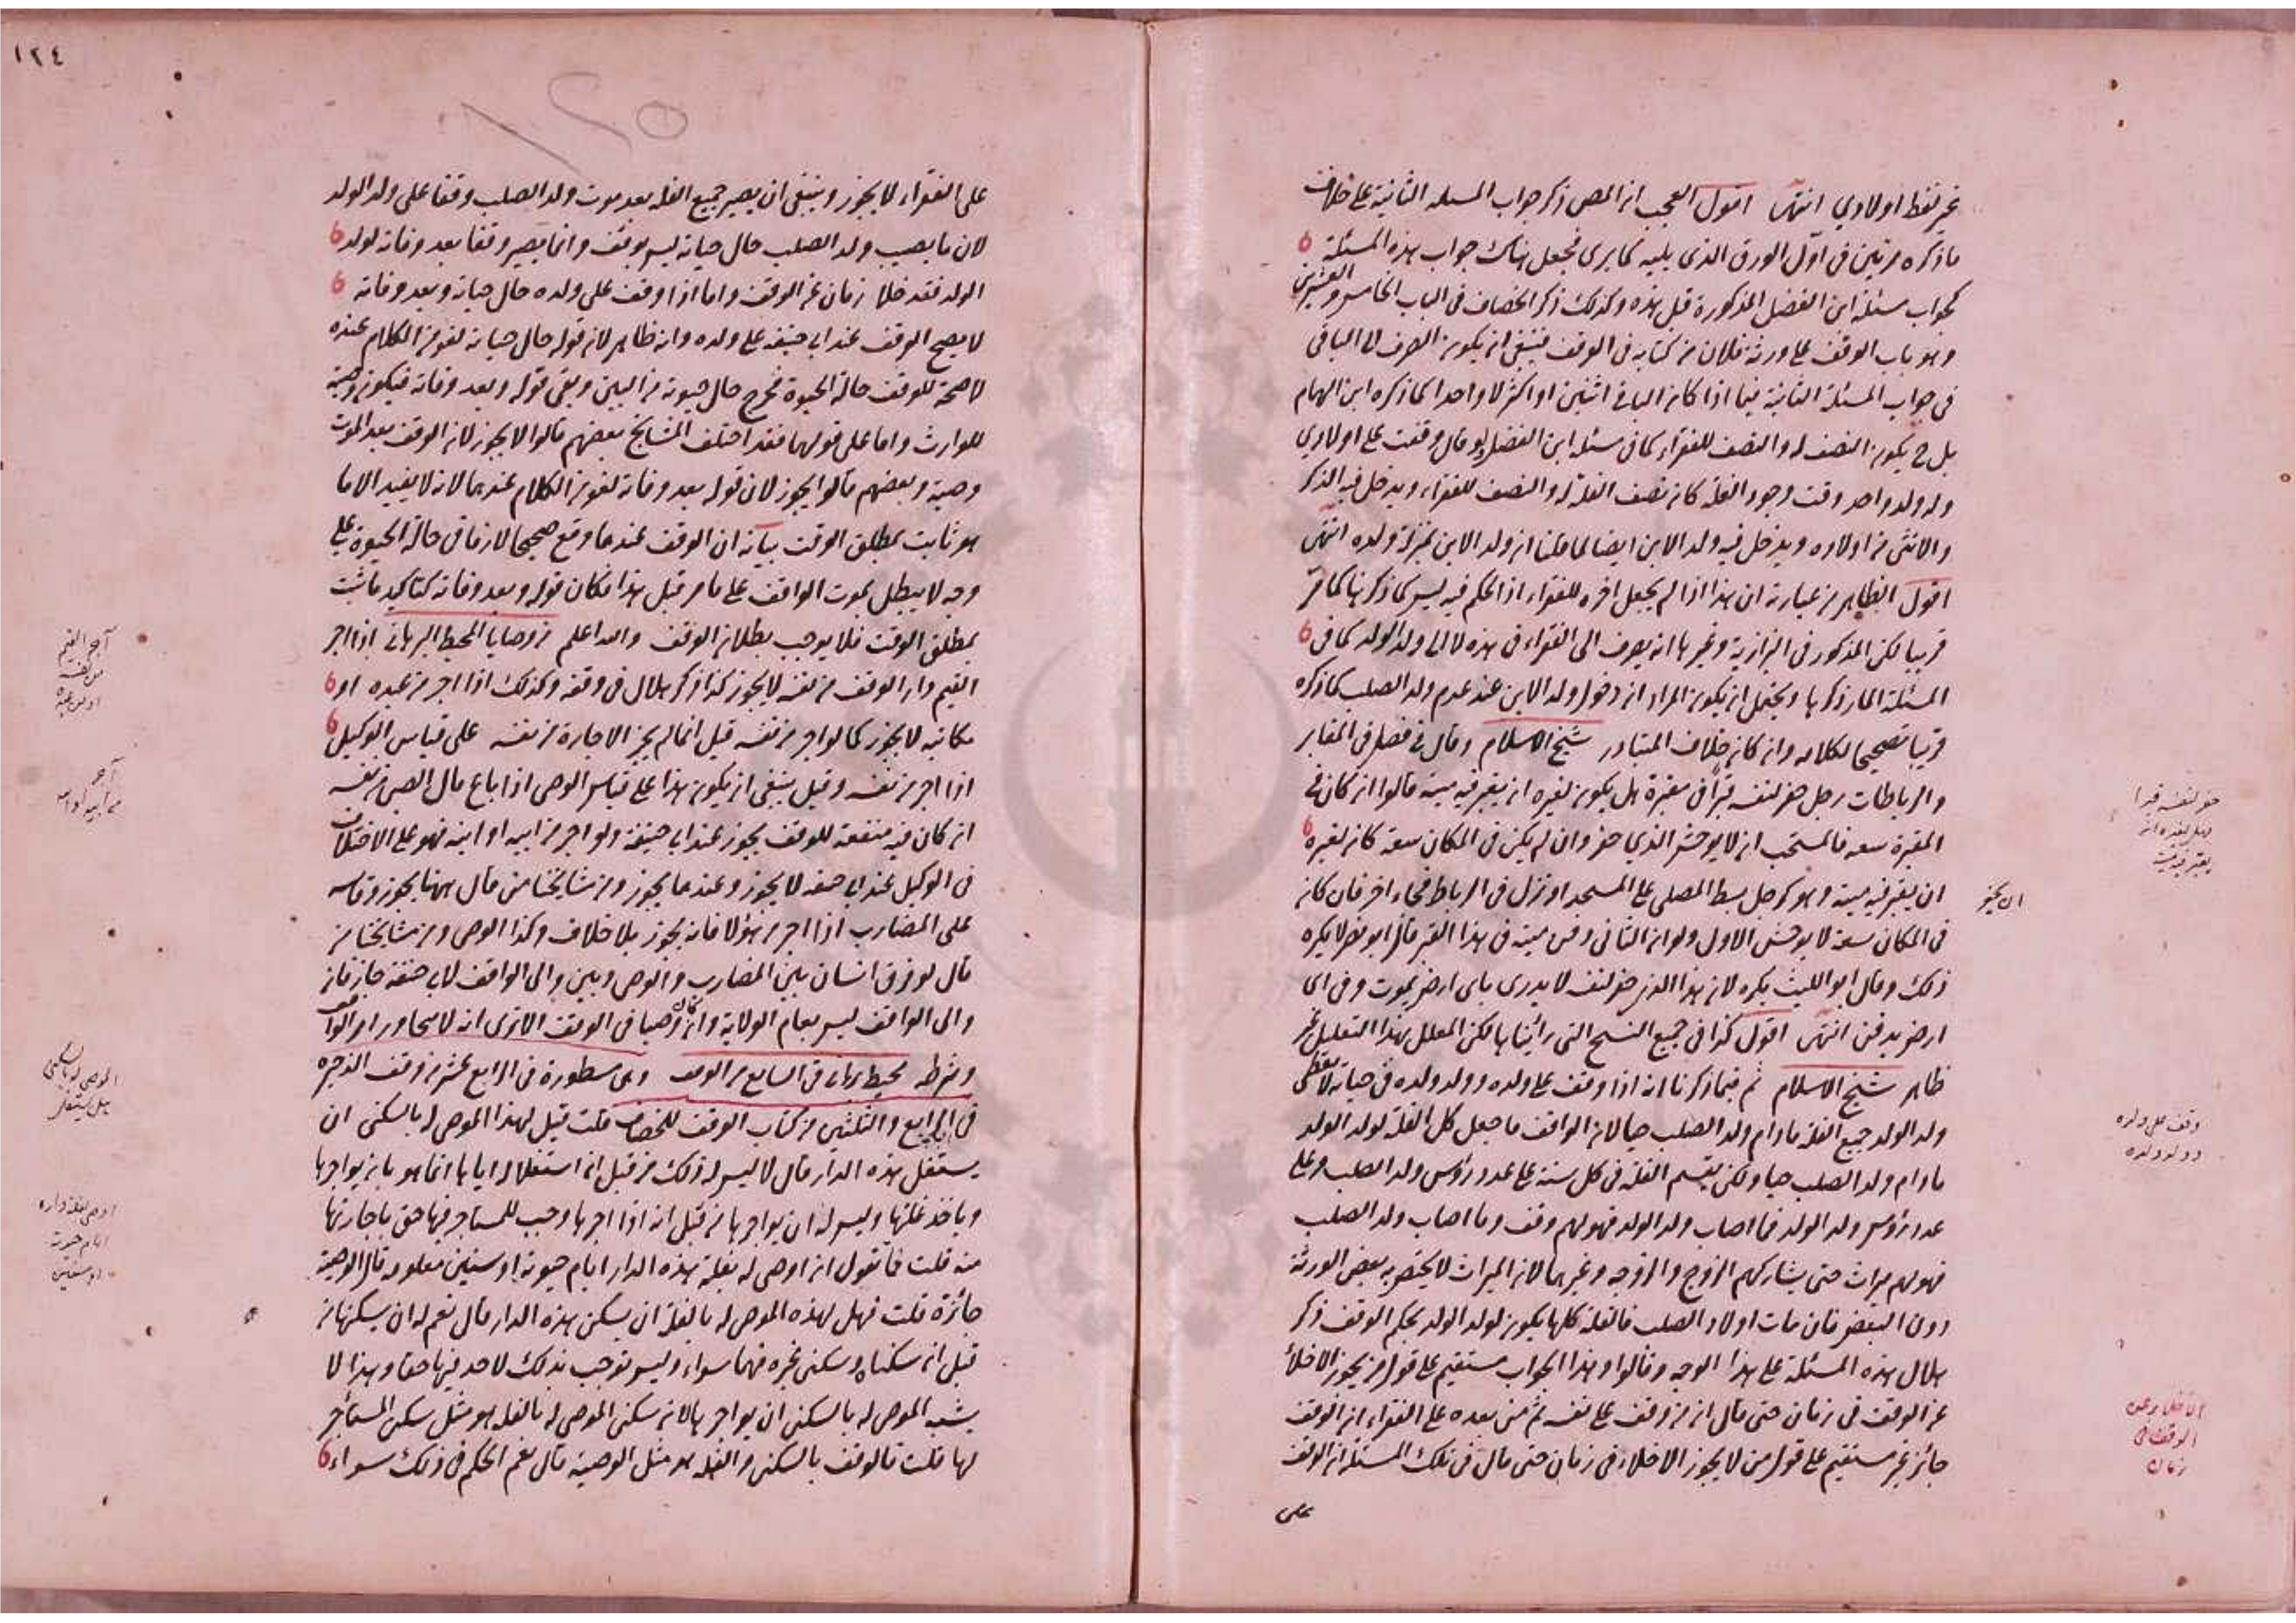 غير لفظ اولادي انتهى اقول العجب ان المص ذكر جواب المسئله الثانية على خلاف
ما ذكره مرتين في اول الورق الذى يليه كما يرى فجعل هناك جواب هذه المسئلة
كجواب مسئلة ابن الفضل المذكورة قبل هذه وكذلك ذكر الخصاف في الباب الخامس والعشرين
وهو باب الوقف على ورثة فلان من كتابه في الوقف فينبغى ان يكون الصرف الى الباقى
في جواب المسئلة الثانية فيما اذا كان الباقى اثنين او اكثر لا واحدا كما ذكره ابن الهمام
بل ح يكون النصف له والنصف للفقراء كما في مسئلة ابن الفضل ولو قال وقفت على اولادي
وله ولد واحد وقت وجود الغلة كان نصف الغلة له والنصف للفقراء ويدخل فيه الذكر
والانثى من اولاده ويدخل فيه ولد الابن ايضا لما قلنا ان ولد الابن بمنزلة ولده انتهى
اقول الظاهر من عبارته ان هذا اذا لم يجعل اخره للفقراء اذ الحكم فيه ليس كما ذكر هنا كما مر
قريبا لكن المذكور في البزازية وغيرها انه يصرف الى الفقراء في هذه لا الى ولد الولد كما في
المسئلة المار ذكرها ويحتمل ان يكون المراد ان دخول ولد الابن عند عدم ولد الصلب كما ذكره
قريبا تصحيحا لكلامه وان كان خلاف المتبادر شيخ الاسلام وقال في فصل في المقابر
والرباطات رجل حفر لنفسه قبرا في مقبرة هل يكون لغيره ان يقبر فيه ميته قالوا ان كان في
المقبرة سعه فالمستحب ان لا يوحش الذي حفر وان لم يكن في المكان سعة كان لغيره
ان يقبر فيه ميته وهو كرجل بسط المصلى على المسجد او نزل في الرباط فجاء اخر فان كان
في المكان سعة لا يوحش الاول ولو ان الثانى دفن ميته في هذا القبر قال ابو نصر لا يكره
ذلك وقال ابو الليث يكره لان هذا الذى حفر لنفسه لا يدرى باى ارض يموت وفي اى
ارض يدفن انتهى اقول كذا في جميع النسخ التى رأيناها لكن المعلل بهذا التعليل غير
ظاهر شيخ الاسلام ثم فيما ذكرنا انه اذا وقف على ولده وولد ولده في حياته لا يعطى
ولد الولد جميع الغلة مادام ولد الصلب حيا لان الواقف ما جعل كل الغلة لولد الولد
مادام ولد الصلب حيا ولكن يقسم الغلة في كل سنة على عدد رؤس ولد الصلب وعلى
عدد رؤس ولد الولد فما اصاب ولد الولد فهو لهم وقف وما اصاب ولد الصلب
فهو لهم ميراث حتى يشاركهم الزوج والزوجه وغيرهما لان الميراث لا يختص به بعض الورثة
دون البعض فان مات اولاد الصلب فالغلة كلها يكون لولد الولد بحكم الوقف ذكر
هلال هذه المسئلة على هذا الوجه وقالوا وهذا الجواب مستقيم على قول من يجوز الاخلاء
عن الوقف في زمان حتى قال ان من وقف على نفسه ثم من بعده على الفقراء ان الوقف
جائز غير مستقيم على قول من لا يجوز الاخلاء في زمان حتى قال في تلك المسئلة ان الوقف
على
حفر لنفسه قبرا
هل لغيره ان
يقبر فيه ميت
وقف على ولده
وولد ولده
الاخلاء عن
الوقف في
زمان
١٢٤
١٢٥
على الفقراء لا يجوز وينبغى ان يصير جميع الغله بعد موت ولد الصلب وقفا على ولد الولد
لان ما يصيب ولد الصلب حال حياته ليس بوقف وانما يصير وقفا بعد وفاته لولد
الولد فقد خلا زمان عن الوقف واما اذا وقف على ولده حال حياته وبعد وفاته
لا يصح الوقف عند ابى حنيفه على ولده وانه ظاهر لان قوله حال حياته لغو من الكلام عنده
لا صحة للوقف حالة الحيوة فخرج حال حيوته من البين وبقى قوله وبعد وفاته فيكون وصية
للوارث واما على قولهما فقد اختلف المشايخ بعضهم قالوا لا يجوز لان الوقف بعد الموت
وصية وبعضهم قالوا يجوز لان قوله بعد وفاته لغو من الكلام عندهما لانه لا يفيد الا ما
هو ثابت بمطلق الوقت بيانه ان الوقف عندهما وقع صحيحا لازما في حالة الحيوة على
وجه لا يبطل بموت الواقف على ما مر قبل هذا فكان قوله وبعد وفاته كتاكيد ما ثبت
بمطلق الوقت فلا يوجب بطلان الوقف والله اعلم من وصايا المحيط البرهانى اذا اجر
القيم دار الوقف من نفسه لا يجوز كذا ذكر هلال في وقفه وكذلك اذا اجر من عبده او
مكاتبه لا يجوز كما لو اجر من نفسه قيل انما لم يجز الاجارة من نفسه على قياس الوكيل
اذا اجر من نفسه وقيل ينبغى ان يكون هذا على قياس الوصى اذا باع مال الصبى من نفسه
ان كان فيه منفعة للوقف يجوز عند ابى حنيفة ولو اجر من ابيه او ابنه فهو على الاختلاف
في الوكيل عند ابى حنيفه لا يجوز وعندهما يجوز ومن مشايخنا من قال ههنا يجوز وقاسه
على المضارب اذا اجر من هؤلاء فانه يجوز بلا خلاف وكذا الوصى ومن مشايخنا من
قال لو فرق انسان بين المضارب والوصى وبين والى الواقف لابى حنيفة جاز فان
والى الواقف ليس بعام الولاية وان كان وصيا في الوقف الا ترى انه لا يتجاوز امر الواقف
وشرطه محيط برهانى في السابع من الوقف وهى مسطورة في الرابع عشر من وقف الذخيره
في الرابع والثلثين من كتاب الوقف للخصاف قلت قيل لهذا الموصى له بالسكنى ان
يستغل هذه الدار قال لا ليس له ذلك من قبل ان استغلاله اياها انما هو بان يواجرها
وياخذ غلتها وليس له ان يواجرها من قبل انه اذا اجرها وجب للمستاجر فيها حق باجارتها
منه قلت فما تقول ان اوصى له بغلة هذه الدار ايام حيوته او سنين معلومه قال الوصية
جائزة قلت فهل لهذه الموصى له بالغلة ان يسكن هذه الدار قال نعم له ان يسكنها من
قبل ان سكناه وسكنى غيره فهما سواء وليس توجب بذلك لاحد فيها حقا وهذا لا
يشبه الموصى له بالسكنى ان يواجرها لان سكنى الموصى له بالغله هو مثل سكنى المستأجر
لها قلت فالوقف بالسكنى والغله هو مثل الوصية قال نعم الحكم في ذلك سواء
آجر القيم
من نفسه
او من عبده